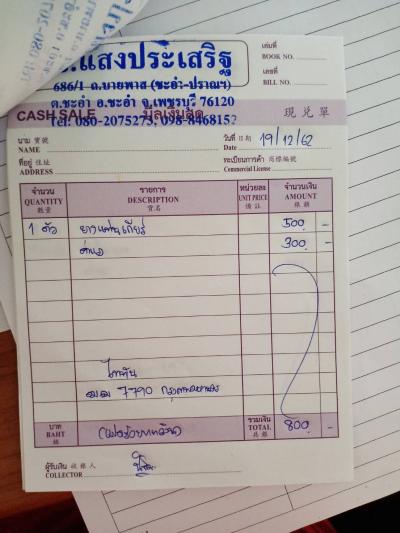 แสงประเสริฐ
686/1 ถ.บายพาส (ชะอำ-ปราณฯ)
ต.ชะอำ อ.ชะอำ จ.เพชรบุรี 76120
Tel: 080-2075273, 098-8468152
เล่มที่
BOOK NO.
เลขที่
BILL NO.
CASH SALE บิลเงินสด 現兌單
นาม 寶號
NAME
วันที่ 日期 19/12/62
ที่อยู่ 住址
ADDRESS
ทะเบียนการค้า 商標編號
Commercial License
จำนวน รายการ หน่วยละ จำนวนเงิน
QUANTITY DESCRIPTION UNIT PRICE AMOUNT
數量 貨名 備註 銀額
1 ตัว ยางแท่นเกียร์ 500 -
ค่าแรง 300 -
7790 กรุงเทพมหานคร
บาท
BAHT
銖
(แปดร้อยบาทถ้วน)
รวมเงิน
TOTAL
共銀
800 -
ผู้รับเงิน 收銀人
COLLECTOR